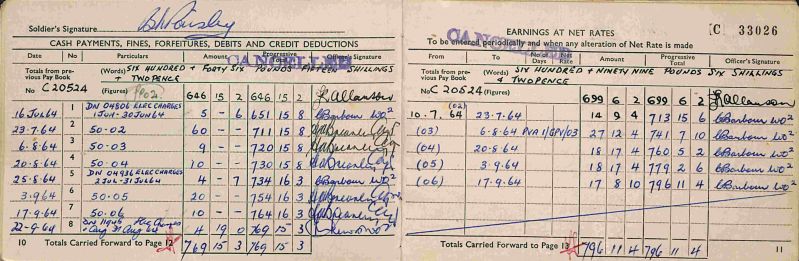 Soldier's Signature
CASH PAYMENTS, FINES, FORFEITURES, DEBITS AND CREDIT DEDUCTIONS
CANCELLED
Date No Particulars Amount Progressive Total Officer's Signature
Totals from previous Pay Book (Words) SIX HUNDRED + FORTY SIX POUNDS FIFTEEN SHILLINGS
+ TWOPENCE
No C 20524 646 15 2 646 15 2
16 JUL 64 1 DN 04806 ELEC CHARGES 1 JUN-30 JUN 64 5 - 6 651 15 8 CBarbour WO2
23-7.64 2 50.02 60 - - 711 15 8
6-8-64 3 50-03 9 - - 720 15 8
20-8-64 4 50-04 10 - - 730 15 8
25-8-64 5 DN 04936 ELEC CHARGES 2 JUL-31 JUL 64 4 - 7 734 16 3 CBarbour WO2
3.9.64 6 50-05 20 - - 754 16 3
17-9-64 7 50-06 10 - - 764 16 3
22-9-64 8 4 19 0 769 15 3
10 Totals Carried Forward to Page 12 769 15 3 769 15 3
EARNINGS AT NET RATES
[C 33026
To be entered periodically and when any alteration of Net Rate is made
CANCELLED
From To No. of Days Net Rate Amount Progressive Total Officer's Signature
Totals from previous Pay Book (Words) SIX HUNDRED + NINETY NINE POUNDS SIX SHILLINGS
+ TWOPENCE
No C 20524 699 6 2 699 6 2
(02)
10.7.64 23-7-64 14 9 4 713 15 6 CBarbour WO2
(03) 6-8-64 PVA 11/GPV/03 27 12 4 741 7 10 CBarbour WO2
(04) 20-8-64 18 17 4 760 5 2 CBarbour WO2
(05) 3.9-64 18 17 4 779 2 6 CBarbour WO2
(06) 17-9-64 17 8 10 796 11 4 CBarbour WO2
Totals Carried Forward to Page 13 796 11 4 796 11 4
11